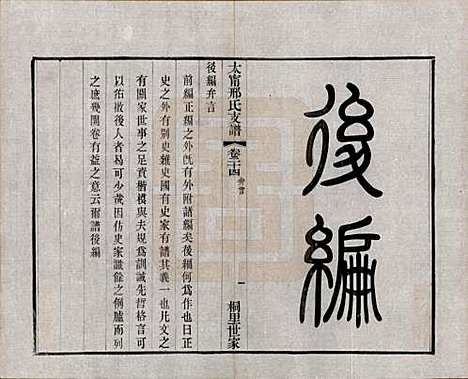 後編
太甯邢氏支譜
卷二十四
弁言
一
桐里世家
後編弁言
前編正編之外旣有外附諸編矣後編何爲作也曰正
史之外有別史雜史國有史家有譜其義一也凡文之
有關家世事之足資楷模與夫規爲訓誡先哲格言可
以佑啟後人者易可少哉因仿史家讖餘之例臚而列
之庶幾開卷有益之意云爾譜後編